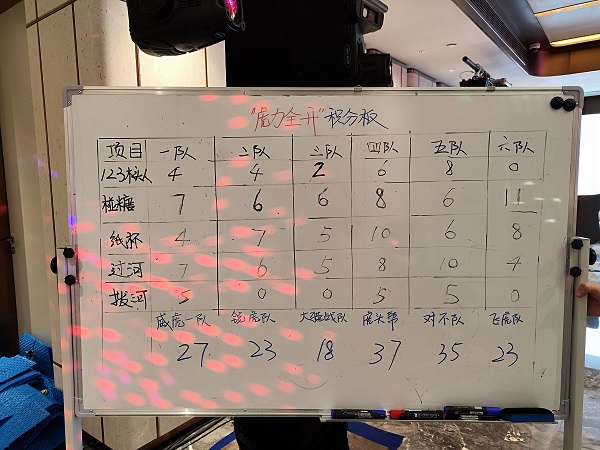 "虎力全开"积分板
项目 一队 二队 三队 四队 五队 六队
123木头人 4 4 2 6 8 0
椪糖 7 6 6 8 6 11
纸杯 4 7 5 10 6 8
过河 7 6 5 8 10 4
拔河 5 0 0 5 5 0
威虎一队 虎队 大战队 虎头帮 对不队 飞虎队
27 23 18 37 35 23